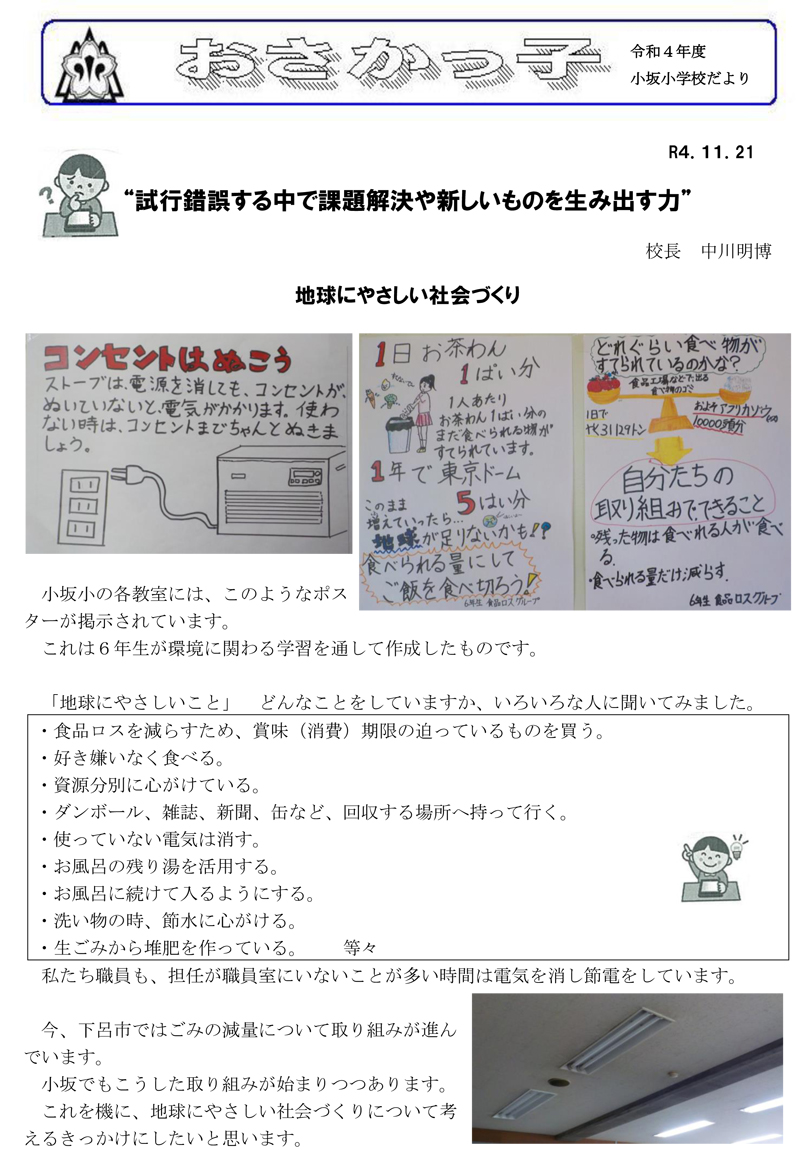 おさかっ子
令和４年度
小坂小学校だより
R4.11.21
“試行錯誤する中で課題解決や新しいものを生み出す力”
校長　中川明博
地球にやさしい社会づくり
コンセントはぬこう
ストーブは、電源を消しても、コンセントが、
ぬいていないと、電気がかかります。使わ
ない時は、コンセントまでちゃんとぬきま
しょう。
1日 お茶わん
1ぱい分
1人あたり
お茶わん1ぱい分の
まだ食べられる物が
すてられています。
1年で 東京ドーム
5はい分
このまま
増えていったら…
地球が足りないかも!?
食べられる量にして
ご飯を食べ切ろう!
6年生 食品ロスグループ
どれぐらい食べ物が
すてられているのかな?
食品工場などで出る
食べ物のゴミ
1日で
およそアフリカゾウ
10000頭分
自分たちの
取り組みでできること
残った物は食べれる人が食べ
る.
・食べられる量だけ減らす.
6年生 食品ロスグループ
小坂小の各教室には、このようなポス
ターが掲示されています。
これは６年生が環境に関わる学習を通して作成したものです。
「地球にやさしいこと」　どんなことをしていますか、いろいろな人に聞いてみました。
・食品ロスを減らすため、賞味（消費）期限の迫っているものを買う。
・好き嫌いなく食べる。
・資源分別に心がけている。
・ダンボール、雑誌、新聞、缶など、回収する場所へ持って行く。
・使っていない電気は消す。
・お風呂の残り湯を活用する。
・お風呂に続けて入るようにする。
・洗い物の時、節水に心がける。
・生ごみから堆肥を作っている。　　等々
私たち職員も、担任が職員室にいないことが多い時間は電気を消し節電をしています。
今、下呂市ではごみの減量について取り組みが進ん
でいます。
小坂でもこうした取り組みが始まりつつあります。
これを機に、地球にやさしい社会づくりについて考
えるきっかけにしたいと思います。